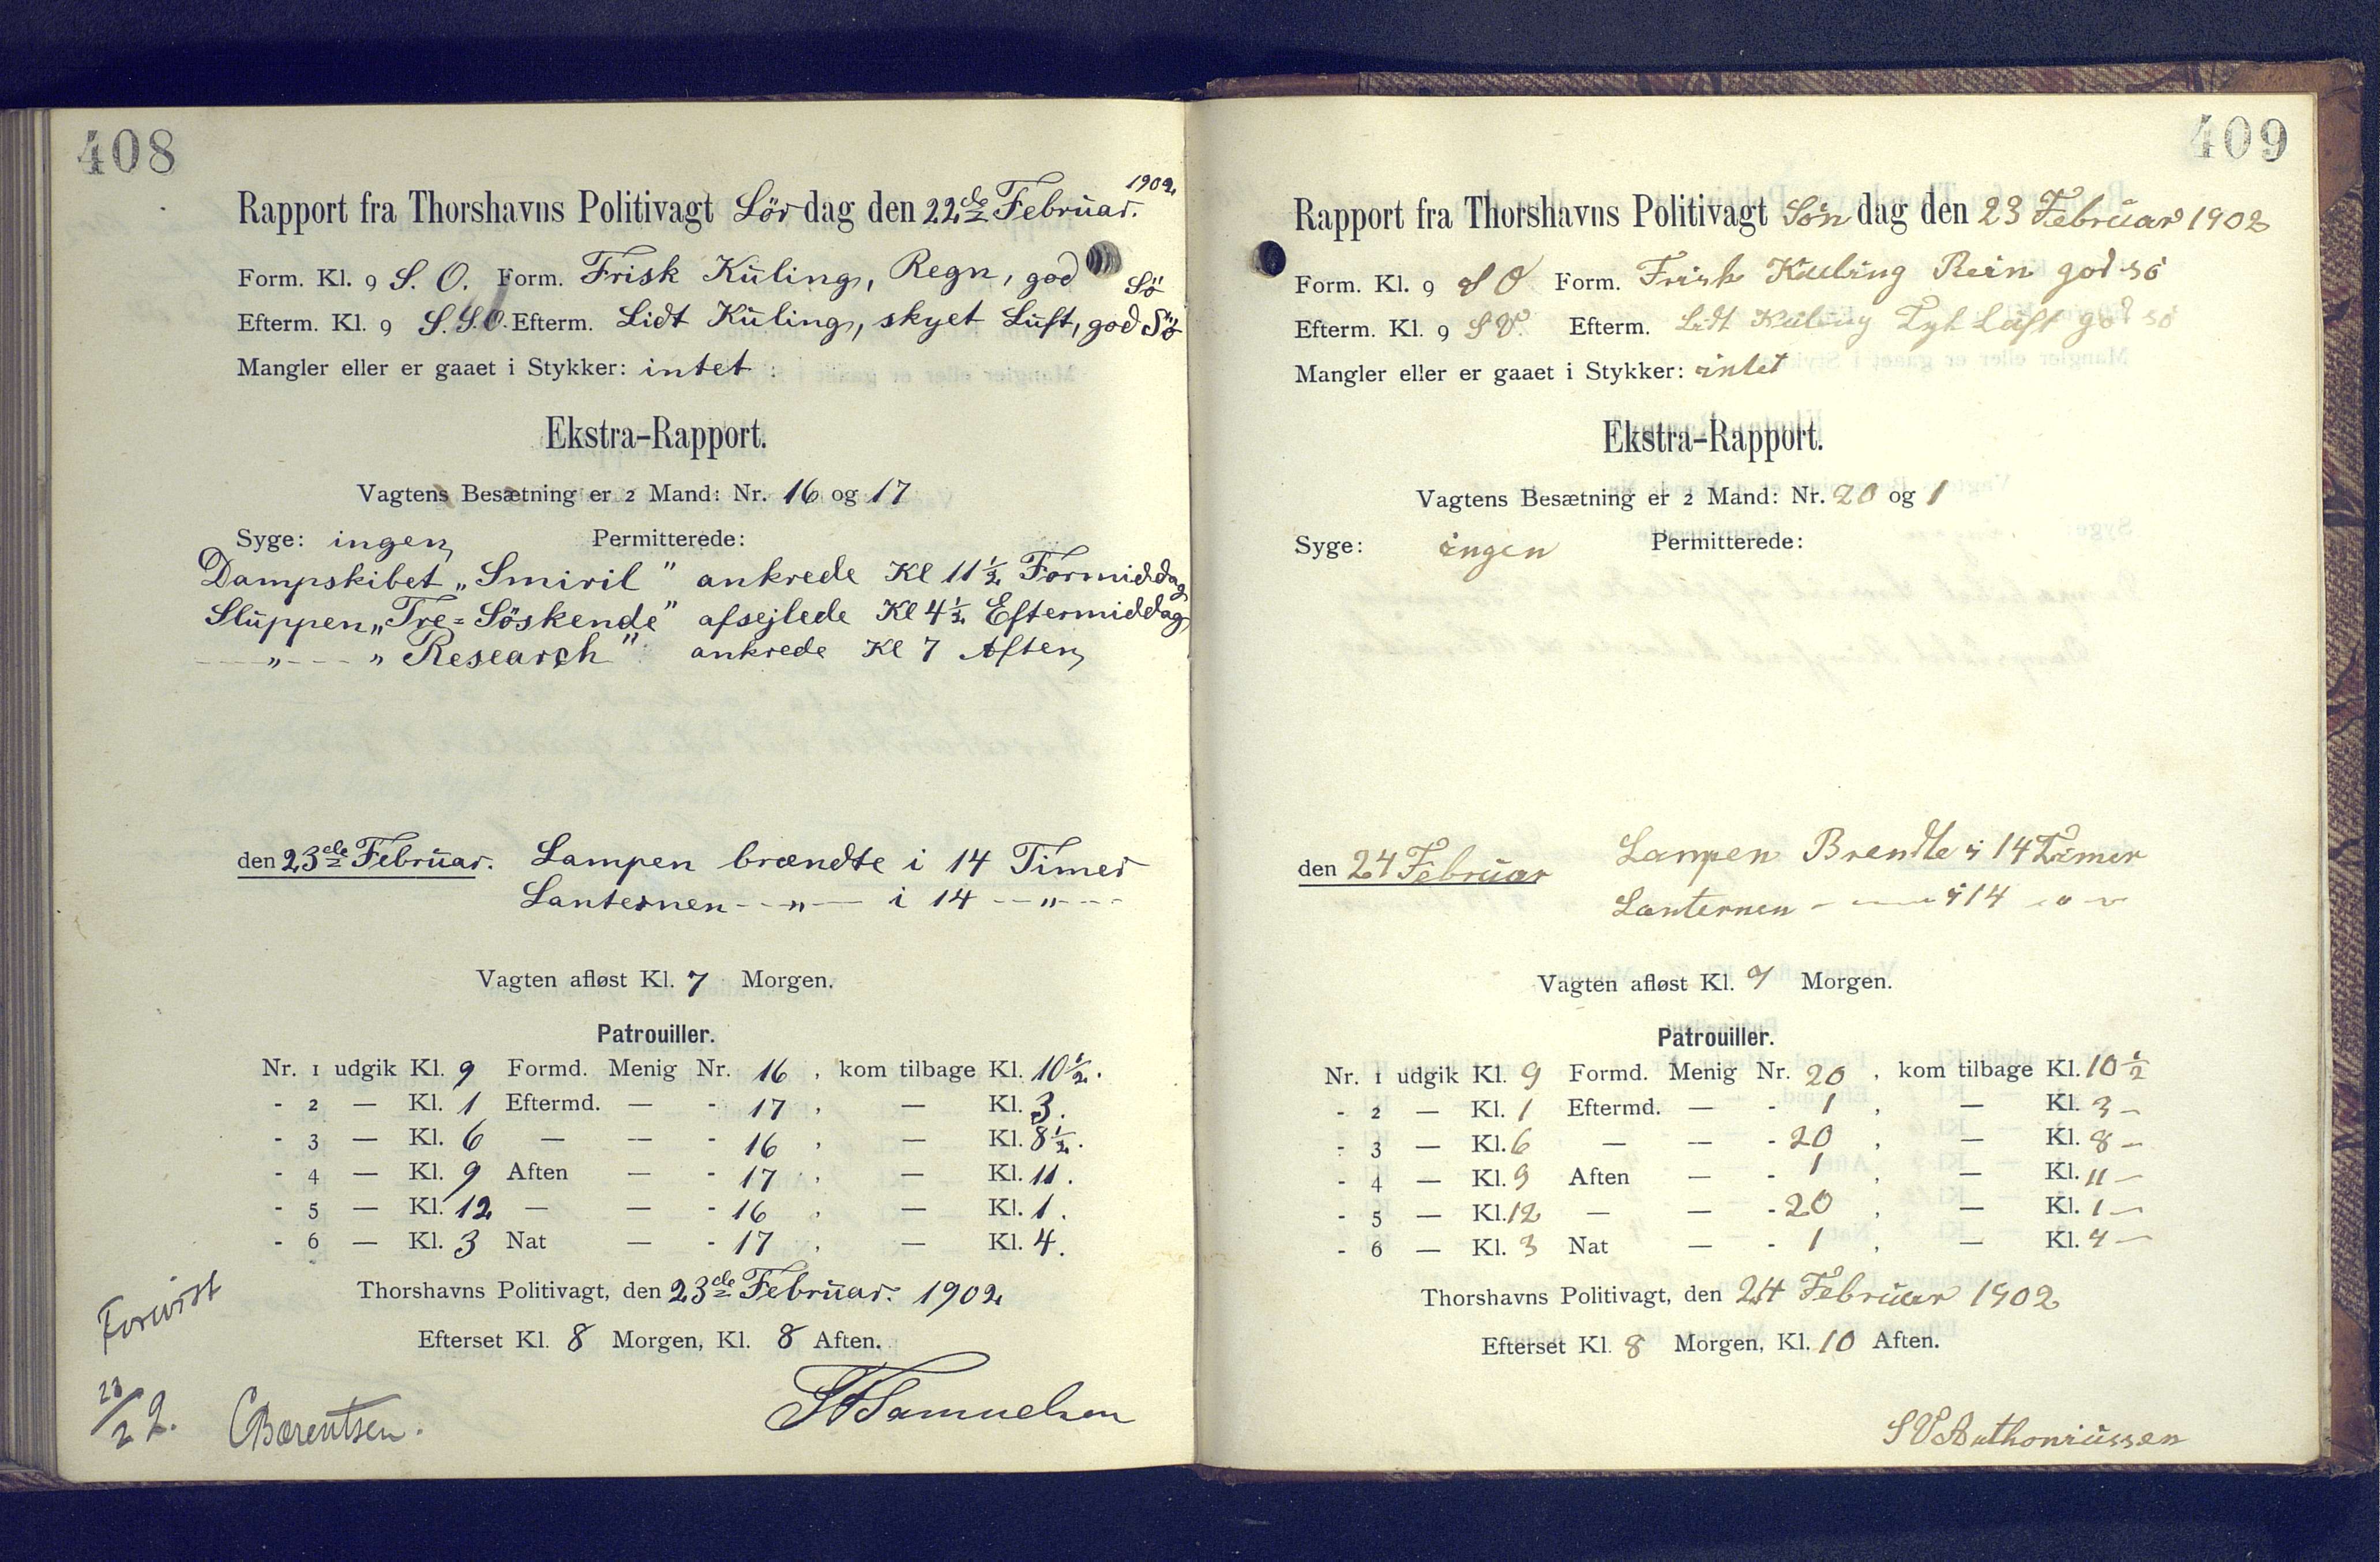 408
1902
Rapport fra Thorshavns Politivagt Lördag den 22de Februar.
Form. Kl. 9 S. O. Form. Frisk Kuling, Regn, god Sö
Efterm. Kl. 9 S.S.O. Efterm. Lidt Kuling, skyet Luft, god Sö
Mangler eller er gaaet i Stykker: intet
Ekstra-Rapport.
Vagtens Besætning er 2 Mand: Nr. 16 og 17
Syge: ingen Permitterede:
Dampskibet „Smiril" ankrede Kl 11½ Formiddag
Sluppen „Tre=Söskende" afsejlede Kl 4½ Eftermiddag
—„— „Research" ankrede Kl 7 Aften
den 23de Februar. Lampen brændte i 14 Timer
Lanternen —„— i 14 —„—
Vagten afløst Kl. 7 Morgen.
Patrouiller.
Nr. 1 udgik Kl. 9 Formd. Menig Nr. 16, kom tilbage Kl. 10½.
- 2 — Kl. 1 Eftermd. — - 17, — Kl. 3.
- 3 — Kl. 6 — — - 16, — Kl. 8½.
- 4 — Kl. 9 Aften — - 17, — Kl. 11.
- 5 — Kl. 12 — — - 16, — Kl. 1.
- 6 — Kl. 3 Nat — - 17, — Kl. 4.
Thorshavns Politivagt, den 23de Februar. 1902
Efterset Kl. 8 Morgen, Kl. 8 Aften.
Forevist
23/2 2.
CBærentsen.
Samuelsen
409
Rapport fra Thorshavns Politivagt Sön dag den 23 Februar 1902
Form. Kl. 9 S O Form. Frisk Kuling Rein god sö
Efterm. Kl. 9 S V. Efterm. Lidt Kuling Tyk Luft god sö
Mangler eller er gaaet i Stykker: intet
Ekstra-Rapport.
Vagtens Besætning er 2 Mand: Nr. 20 og 1
Syge: ingen Permitterede:
den 24 Februar Lampen Brendte i 14 Timer
Lanternen — — i 14 — „ —
Vagten afløst Kl. 7 Morgen.
Patrouiller.
Nr. 1 udgik Kl. 9 Formd. Menig Nr. 20, kom tilbage Kl. 10½
- 2 — Kl. 1 Eftermd. — - 1, — Kl. 3 —
- 3 — Kl. 6 — — - 20, — Kl. 8 —
- 4 — Kl. 9 Aften — - 1, — Kl. 11 —
- 5 — Kl. 12 — — - 20, — Kl. 1 —
- 6 — Kl. 3 Nat — - 1, — Kl. 4 —
Thorshavns Politivagt, den 24 Februar 1902
Efterset Kl. 8 Morgen, Kl. 10 Aften.
S V Anthoniussen